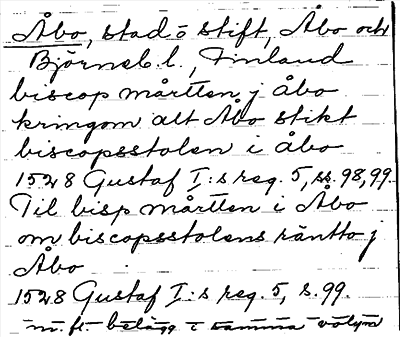 Åbo, stad o stift, Åbo och
Björneb. l., Finland
biscop mårtten j åbo
kringom alt Åbo stikt
biscopsstolen i åbo
1528 Gustaf I:s reg. 5, ss. 98, 99.
Til bisp mårtten i Åbo
om biscopsstolens räntto j
Åbo
1528 Gustaf I:s reg. 5, s. 99.
m. fl. belägg i samma volym